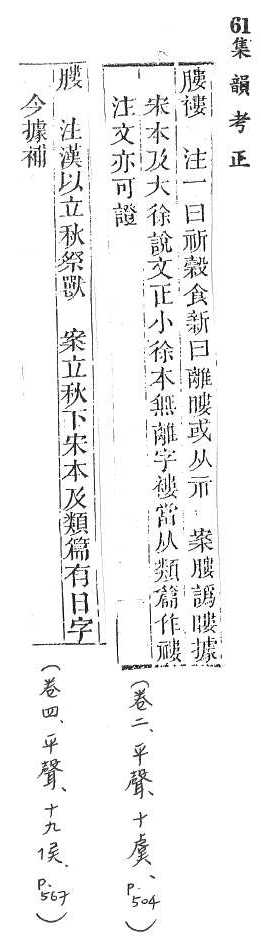 61集韻考正
膢褸 注一曰祈穀食新曰離瞜或从示 案膢譌瞜據
宋本及大徐說文正小徐本無離字褸當从類篇作䄛
注文亦可證
(卷二、平聲、十虞、p.504)
膢 注漢以立秋祭獸 案立秋下宋本及類篇有日字
今據補
(卷四、平聲、十九侯、p.567)